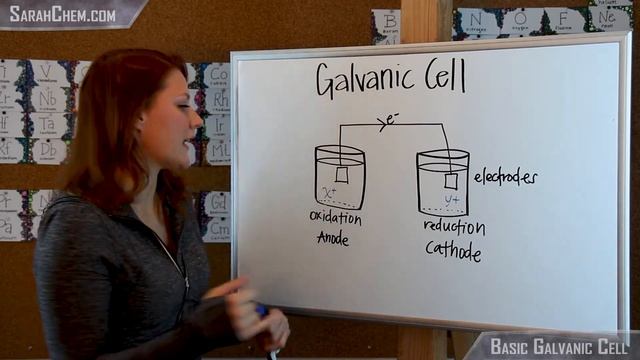 SarahChem.com
B
N
O
F
Ne
V
Nb
Ta
Db
Co
Rh
Ir
Gd
Cm
Pa
Galvanic Cell
e-
electrodes
x+
y+
oxidation
Anode
reduction
Cathode
Basic Galvanic Cell